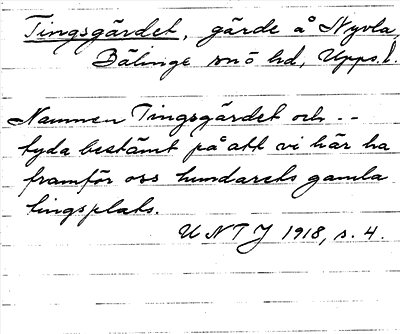 Tingsgärdet, gärde å Nyvla,
Bälinge sn ö hd, Upps. l.
Namnen Tingsgärdet och --
tyda bestämt på att vi här ha
framför oss hundarets gamla
tingsplats.
UNTJ 1918, s. 4.